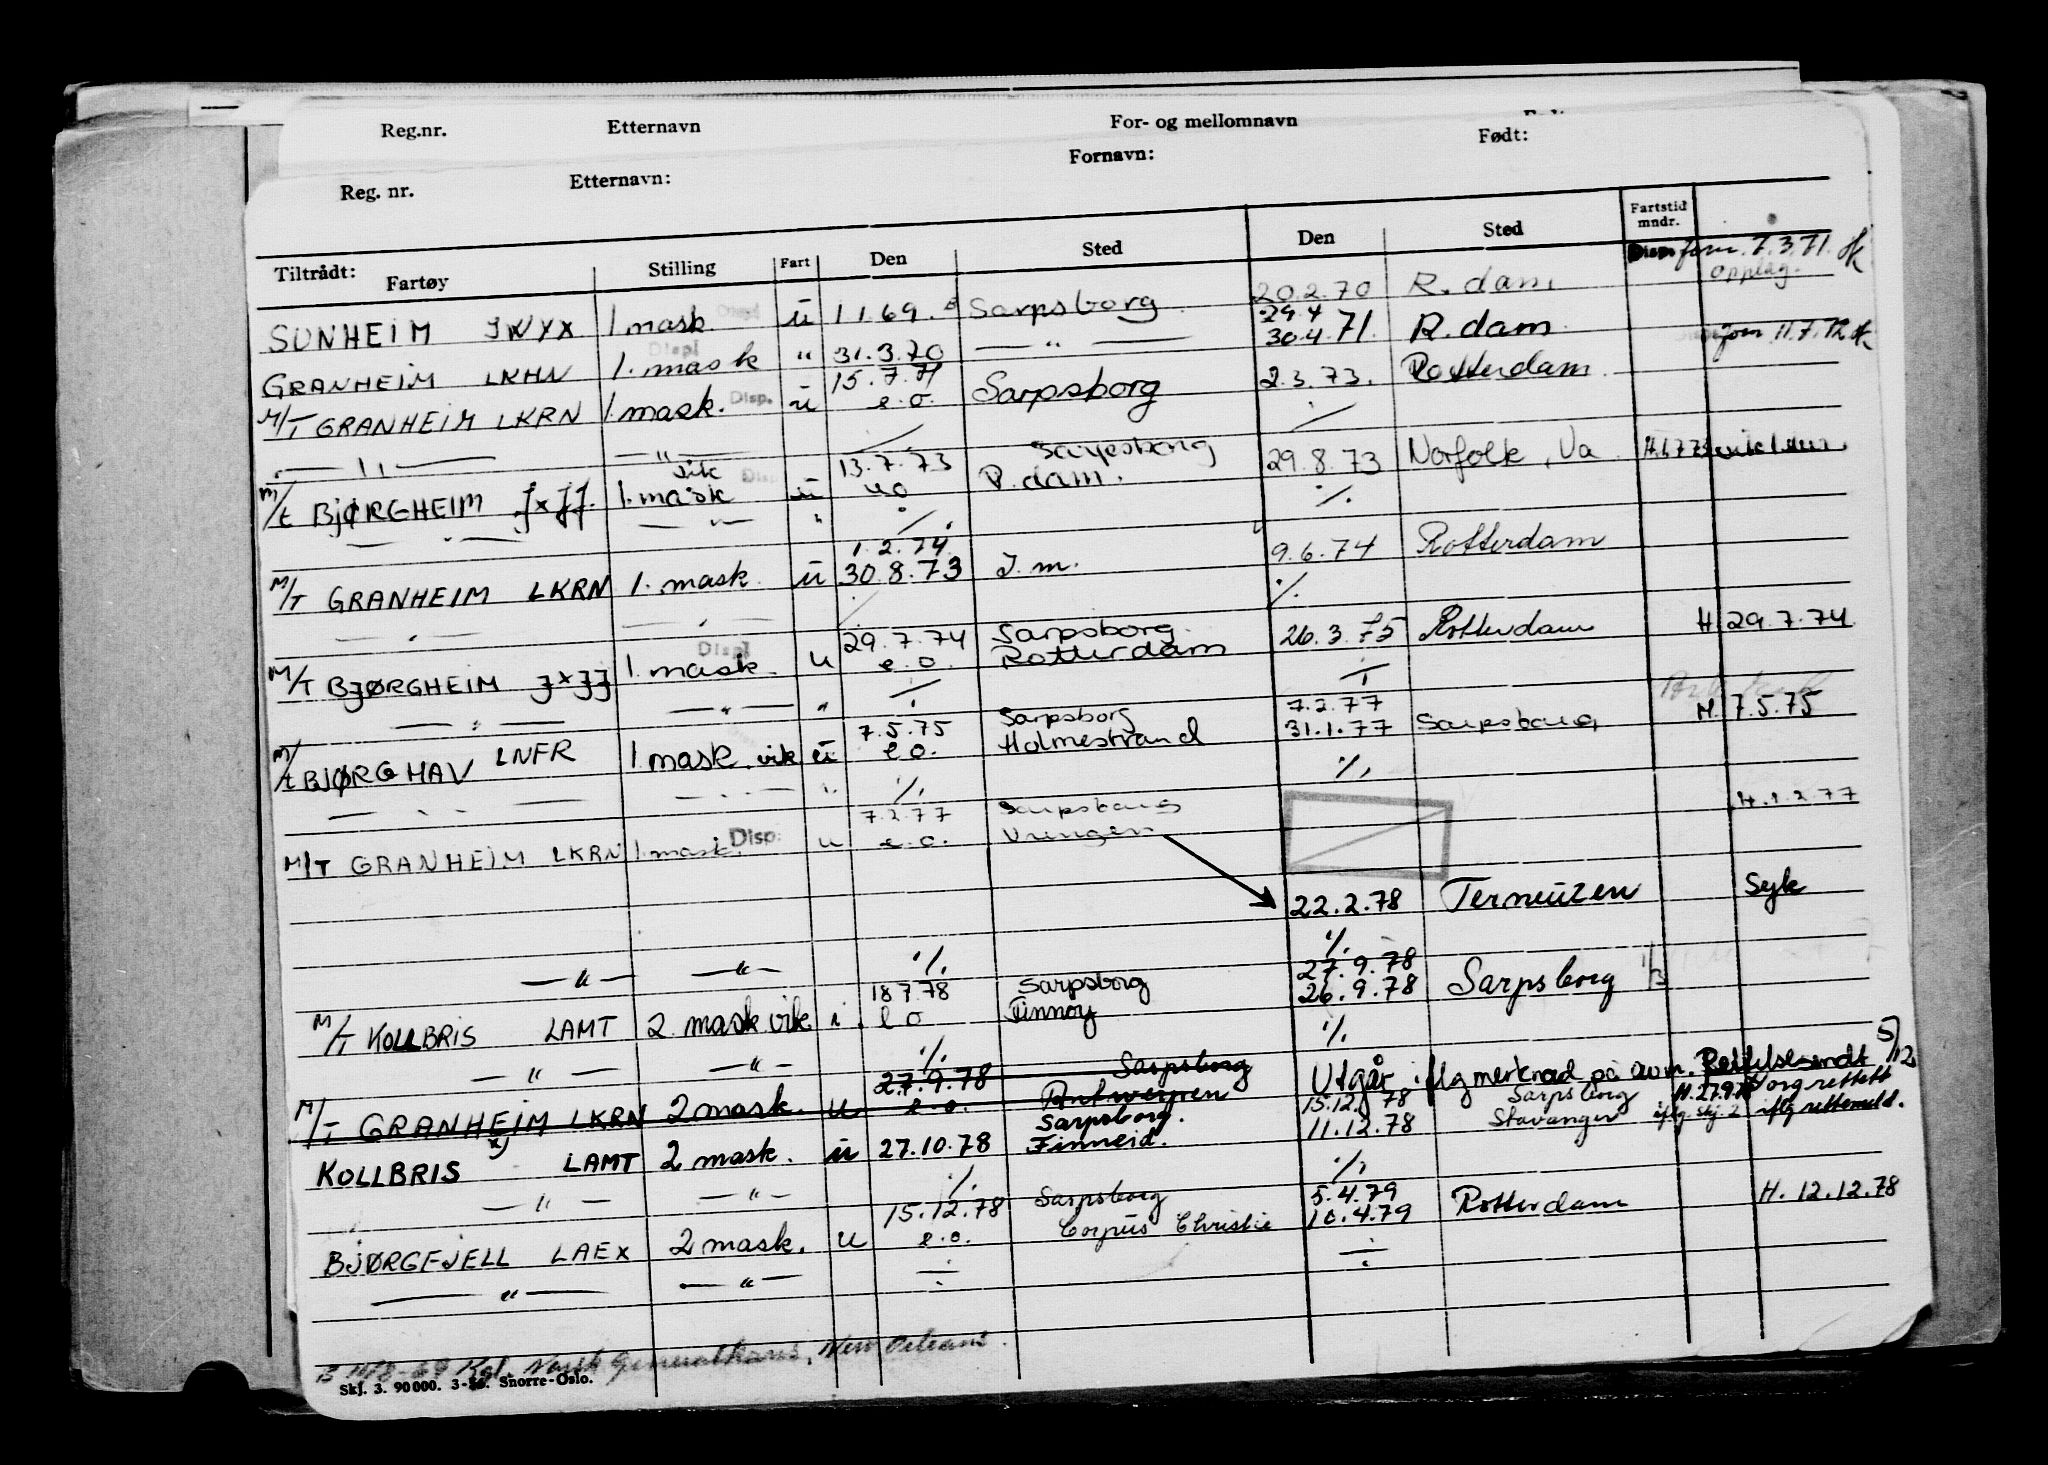 Reg.nr. Etternavn For- og mellomnavn
Reg. nr. Etternavn: Fornavn: Født:
Tiltrådt: Fartøy Stilling Fart Den Sted Den Sted Fartstid mndr.
Disp. from. 7.3.71.
20.2.70 R.dam Opplag.
SUNHEIM JWYX 1 mask Displ ü 1.1.69. Sarpsborg 29.4
31.3.70 — " — 30.4.71. R.dam
GRANHEIM LKHN 1. mask Displ " 15.7.71 from 11.7.72
M/T GRANHEIM LKRN 1. mask. Disp. ü e.o. Sarpsborg 2.3.73. Rotterdam
— " — — " — ./.
13.7.73 Sarpsborg
M/t BJØRGHEIM JXJJ. 1. mask vik Disp ü u.o R.dam. 29.8.73 Norfolk, Va
— " — — " — " ./. ./.
1.2.74.
M/T GRANHEIM LKRN 1. mask. ü 30.8.73 J.m. 9.6.74 Rotterdam
— " — — " — ./. ./.
29.7.74 Sarpsborg
M/T BJØRGHEIM JXJJ 1. mask. Displ u e.o. Rotterdam 26.3.75 Rotterdam H. 29.7.74
— " — — " — " ./. ./.
7.5.75 Sarpsborg 7.2.77
M/t BJØRGHAV LNFR 1. mask. vik ü e.o. Holmestrand 31.1.77 Sarpsborg H. 7.5.75
— " — — " — " ./. ./.
7.2.77 Sarpsborg H. 1.2.77
M/T GRANHEIM LKRN 1. mask. Disp: u e.o. Vringen
22.2.78 Terneuzen Syk
— " — — " — ./. ./.
18.7.78 Sarpsborg 27.9.78
M/T KOLLBRIS LAMT 2 mask vik. i. e o Finnøy 26.9.78 Sarpsborg
— " — — " — ./. ./.
27.9.78 Sarpsborg Utgår iflg merknad på 5/12
M/T GRANHEIM LKRN 2 mask. u e.o. Antwerpen 15.12.78 Sarpsborg org rettett
Sarpsborg. 11.12.78 Stavanger iflg. skj. 2 iflg rettemeld.
KOLLBRIS x) LAMT 2 mask. ü 27.10.78 Finneid.
— " — — " — ./. ./.
15.12.78 Sarpsborg 5.4.79
BJØRGFJELL LAEX 2 mask. u e.o. Corpus Christie 10.4.79 Rotterdam H. 12.12.78
— " — — " — ÷ ÷
Kgl. Norsk Generalkons, New Orleans.
Skj. 3. 90000. Snorre-Oslo.